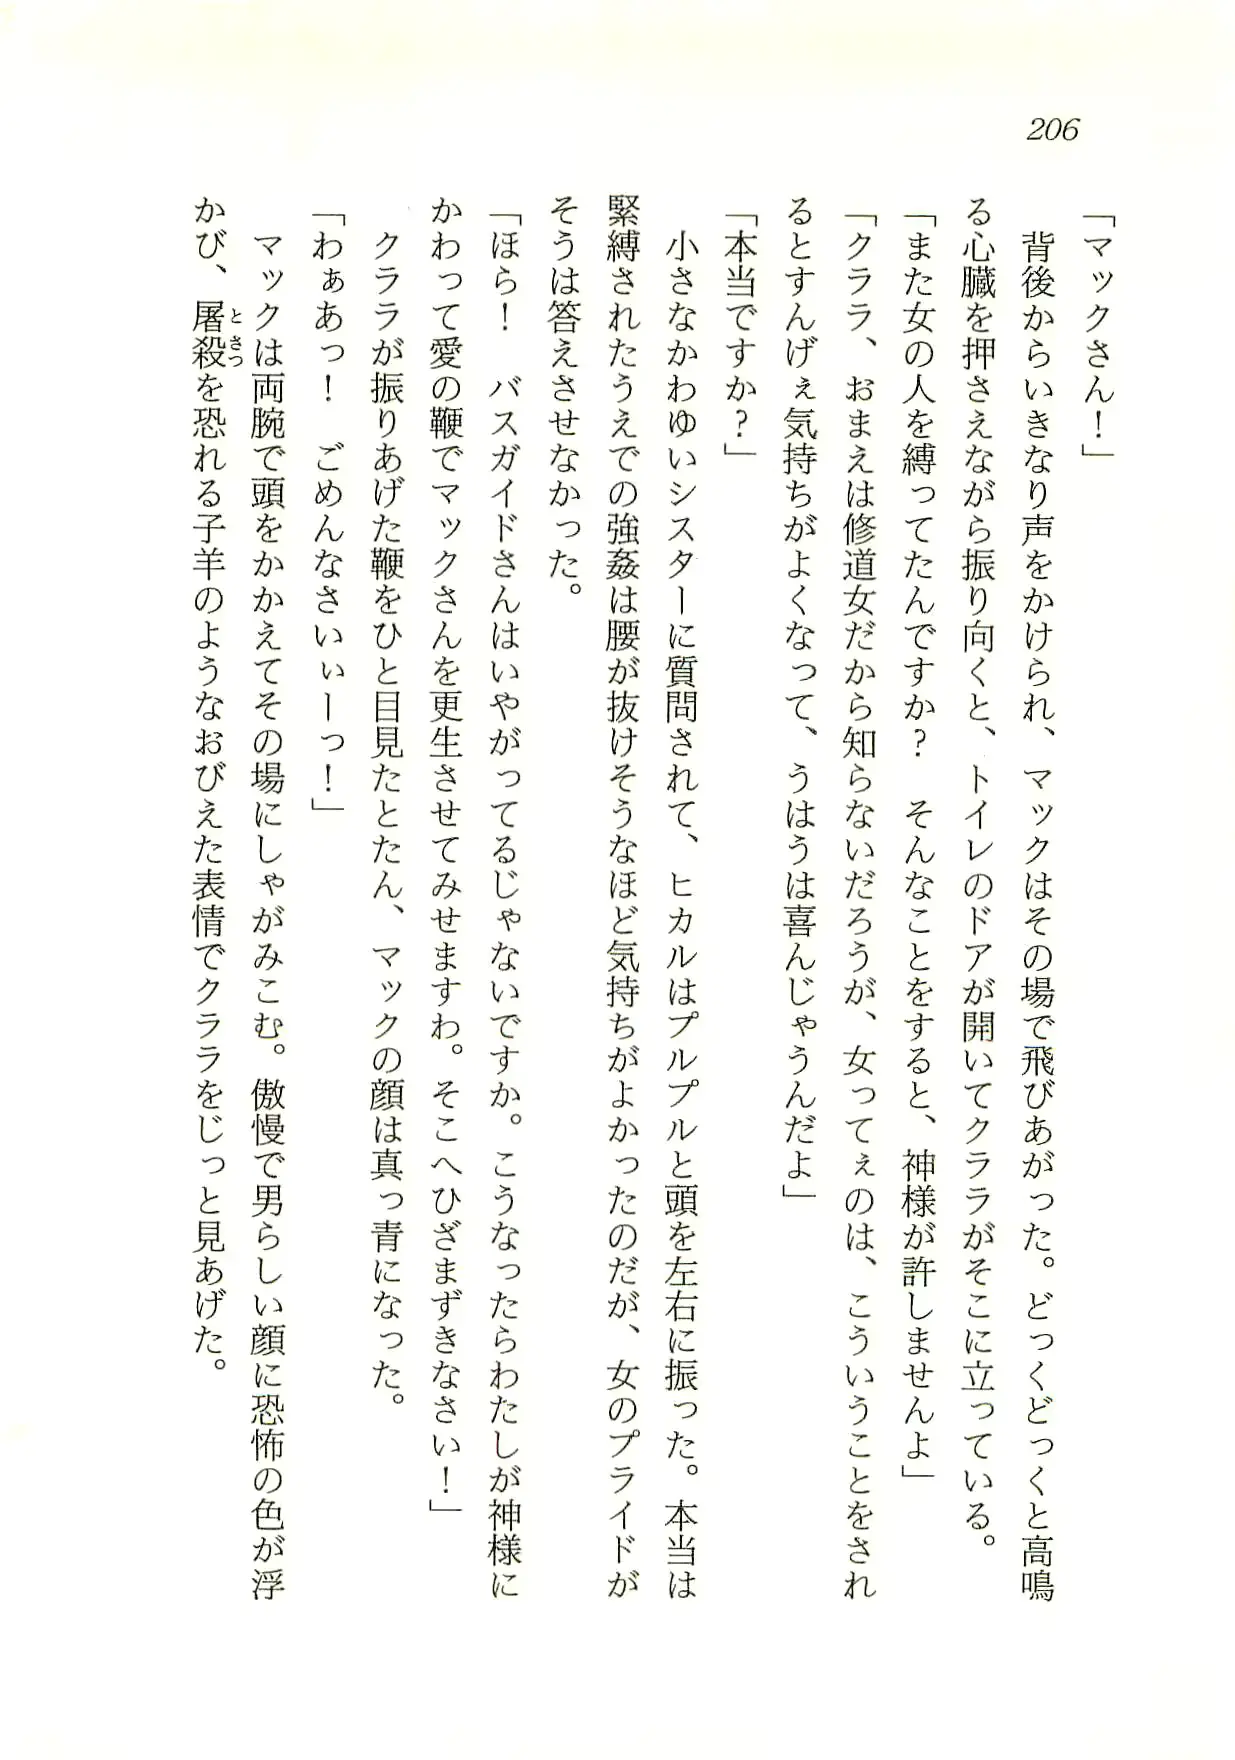 206
「マックさん！」
　背後からいきなり声をかけられ、マックはその場で飛びあがった。どっくどっくと高鳴
る心臓を押さえながら振り向くと、トイレのドアが開いてクララがそこに立っている。
「また女の人を縛ってたんですか？　そんなことをすると、神様が許しませんよ」
「クララ、おまえは修道女だから知らないだろうが、女ってぇのは、こういうことをされ
るとすんげぇ気持ちがよくなって、うはうは喜んじゃうんだよ」
「本当ですか？」
　小さなかわゆいシスターに質問されて、ヒカルはプルプルと頭を左右に振った。本当は
緊縛されたうえでの強姦は腰が抜けそうなほど気持ちがよかったのだが、女のプライドが
そうは答えさせなかった。
「ほら！　バスガイドさんはいやがってるじゃないですか。こうなったらわたしが神様に
かわって愛の鞭でマックさんを更生させてみせますわ。そこへひざまずきなさい！」
　クララが振りあげた鞭をひと目見たとたん、マックの顔は真っ青になった。
「わぁあっ！　ごめんなさいぃーっ！」
　マックは両腕で頭をかかえてその場にしゃがみこむ。傲慢で男らしい顔に恐怖の色が浮
かび、屠殺とさつを恐れる子羊のようなおびえた表情でクララをじっと見あげた。